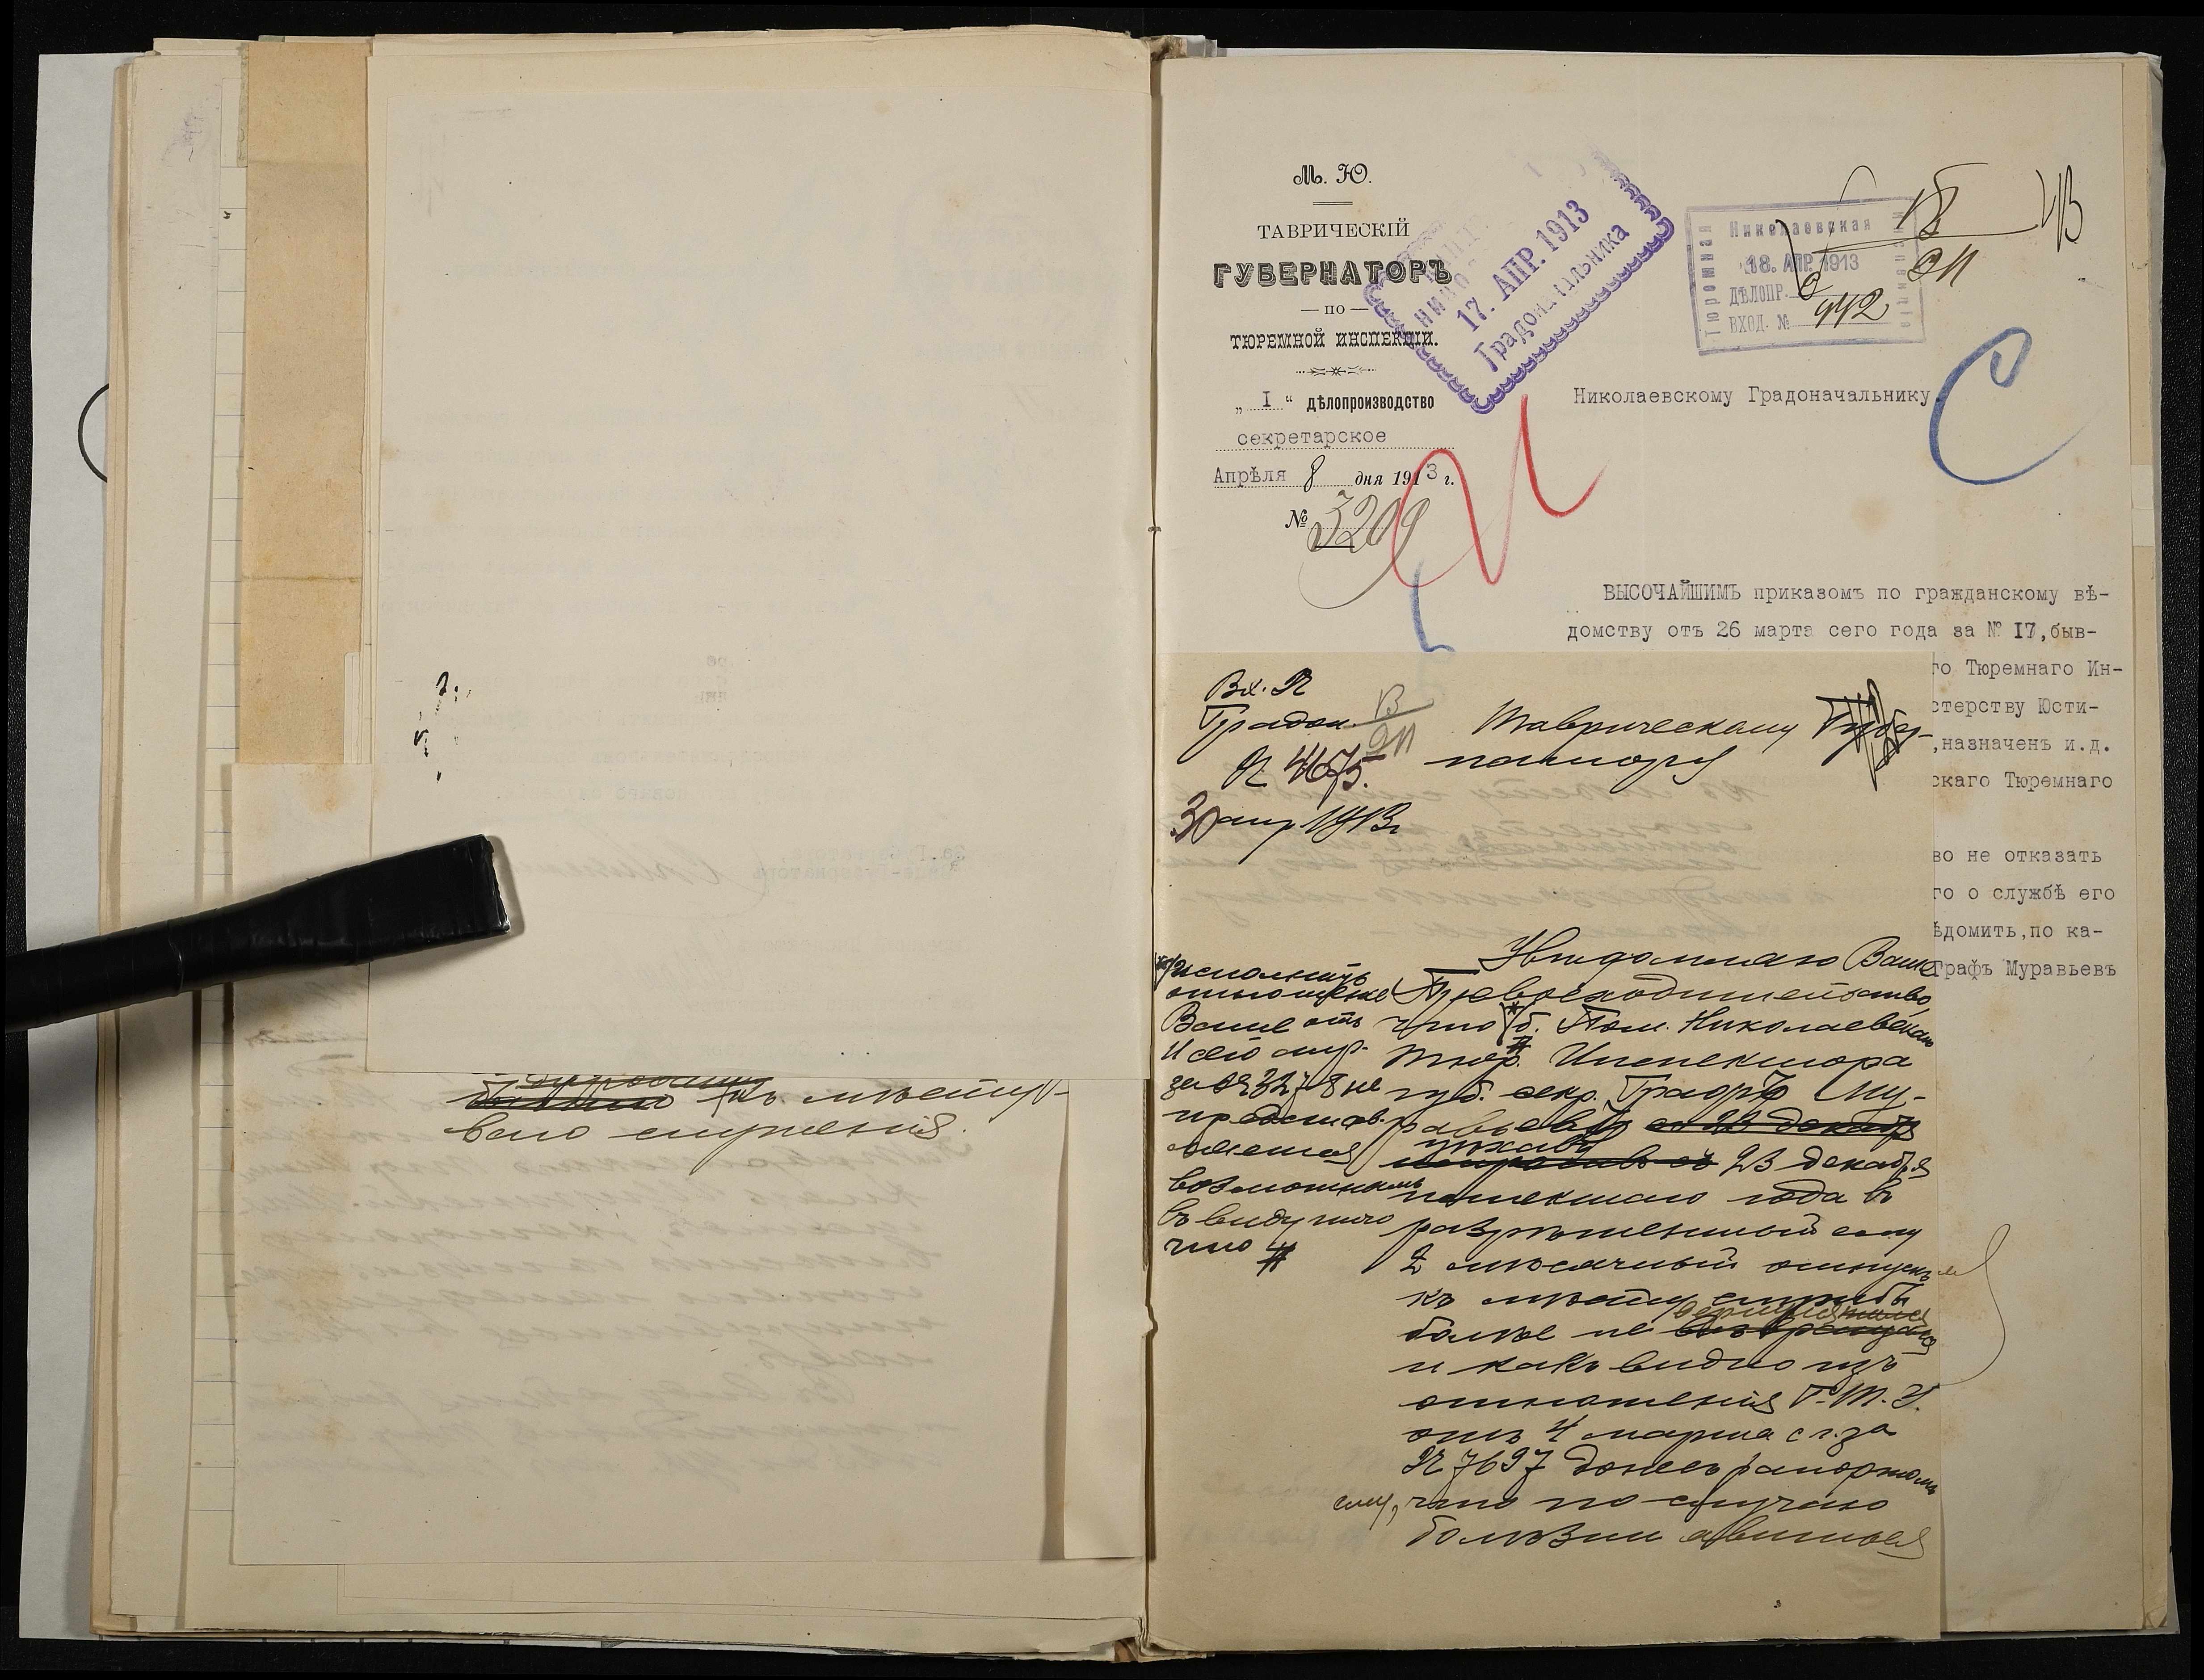 къ мѣсту
своего служенія.
М. Ю.
ТАВРИЧЕСКІЙ
ГУБЕРНАТОРЪ
— по —
ТЮРЕМНОЙ ИНСПЕКЦІИ.
„ I “ дѣлопроизводство
секретарское
Апрѣля 8 дня 1913 г.
№ 3209
17. АПР. 1913
Градоначальника
Николаевская
Тюремная
18. АПР. 1913
ДѢЛОПР.
ВХОД. № 442
Николаевскому Градоначальнику.
ВЫСОЧАЙШИМЪ приказомъ по гражданскому вѣ-
домству отъ 26 марта сего года за № 17, быв-
го Тюремнаго Ин-
стерству Юсти-
,назначенъ и.д.
скаго Тюремнаго
во не отказать
го о службѣ его
ѣдомить,по ка-
Графъ Муравьевъ
Вх. №
Градон.
№ 4675.
30 апр 1913 г
Таврическому Губер-
натору
Увѣдомляю Ваше
Превосходительство
что б. Пом. Николаевскаго
Тюр. Инспектора
губ. секр. Графъ Му-
равьевъ со 23 декабря
уѣхавъ 23 декабря
истекшаго года въ
разрѣшенный ему
2 мѣсячный отпускъ
къ мѣсту службы
болѣе не
и какъ видно изъ
отношенія Г. Т. У.
отъ 4 марта с.г. за
№ 7697 донесъ рапортомъ
ему, что по случаю
болѣзни явиться
исполнить
отношеніе
Ваше отъ
11 сего апр.
за № 3278 не
представ-
ляется
возможнымъ
въ виду того
что #